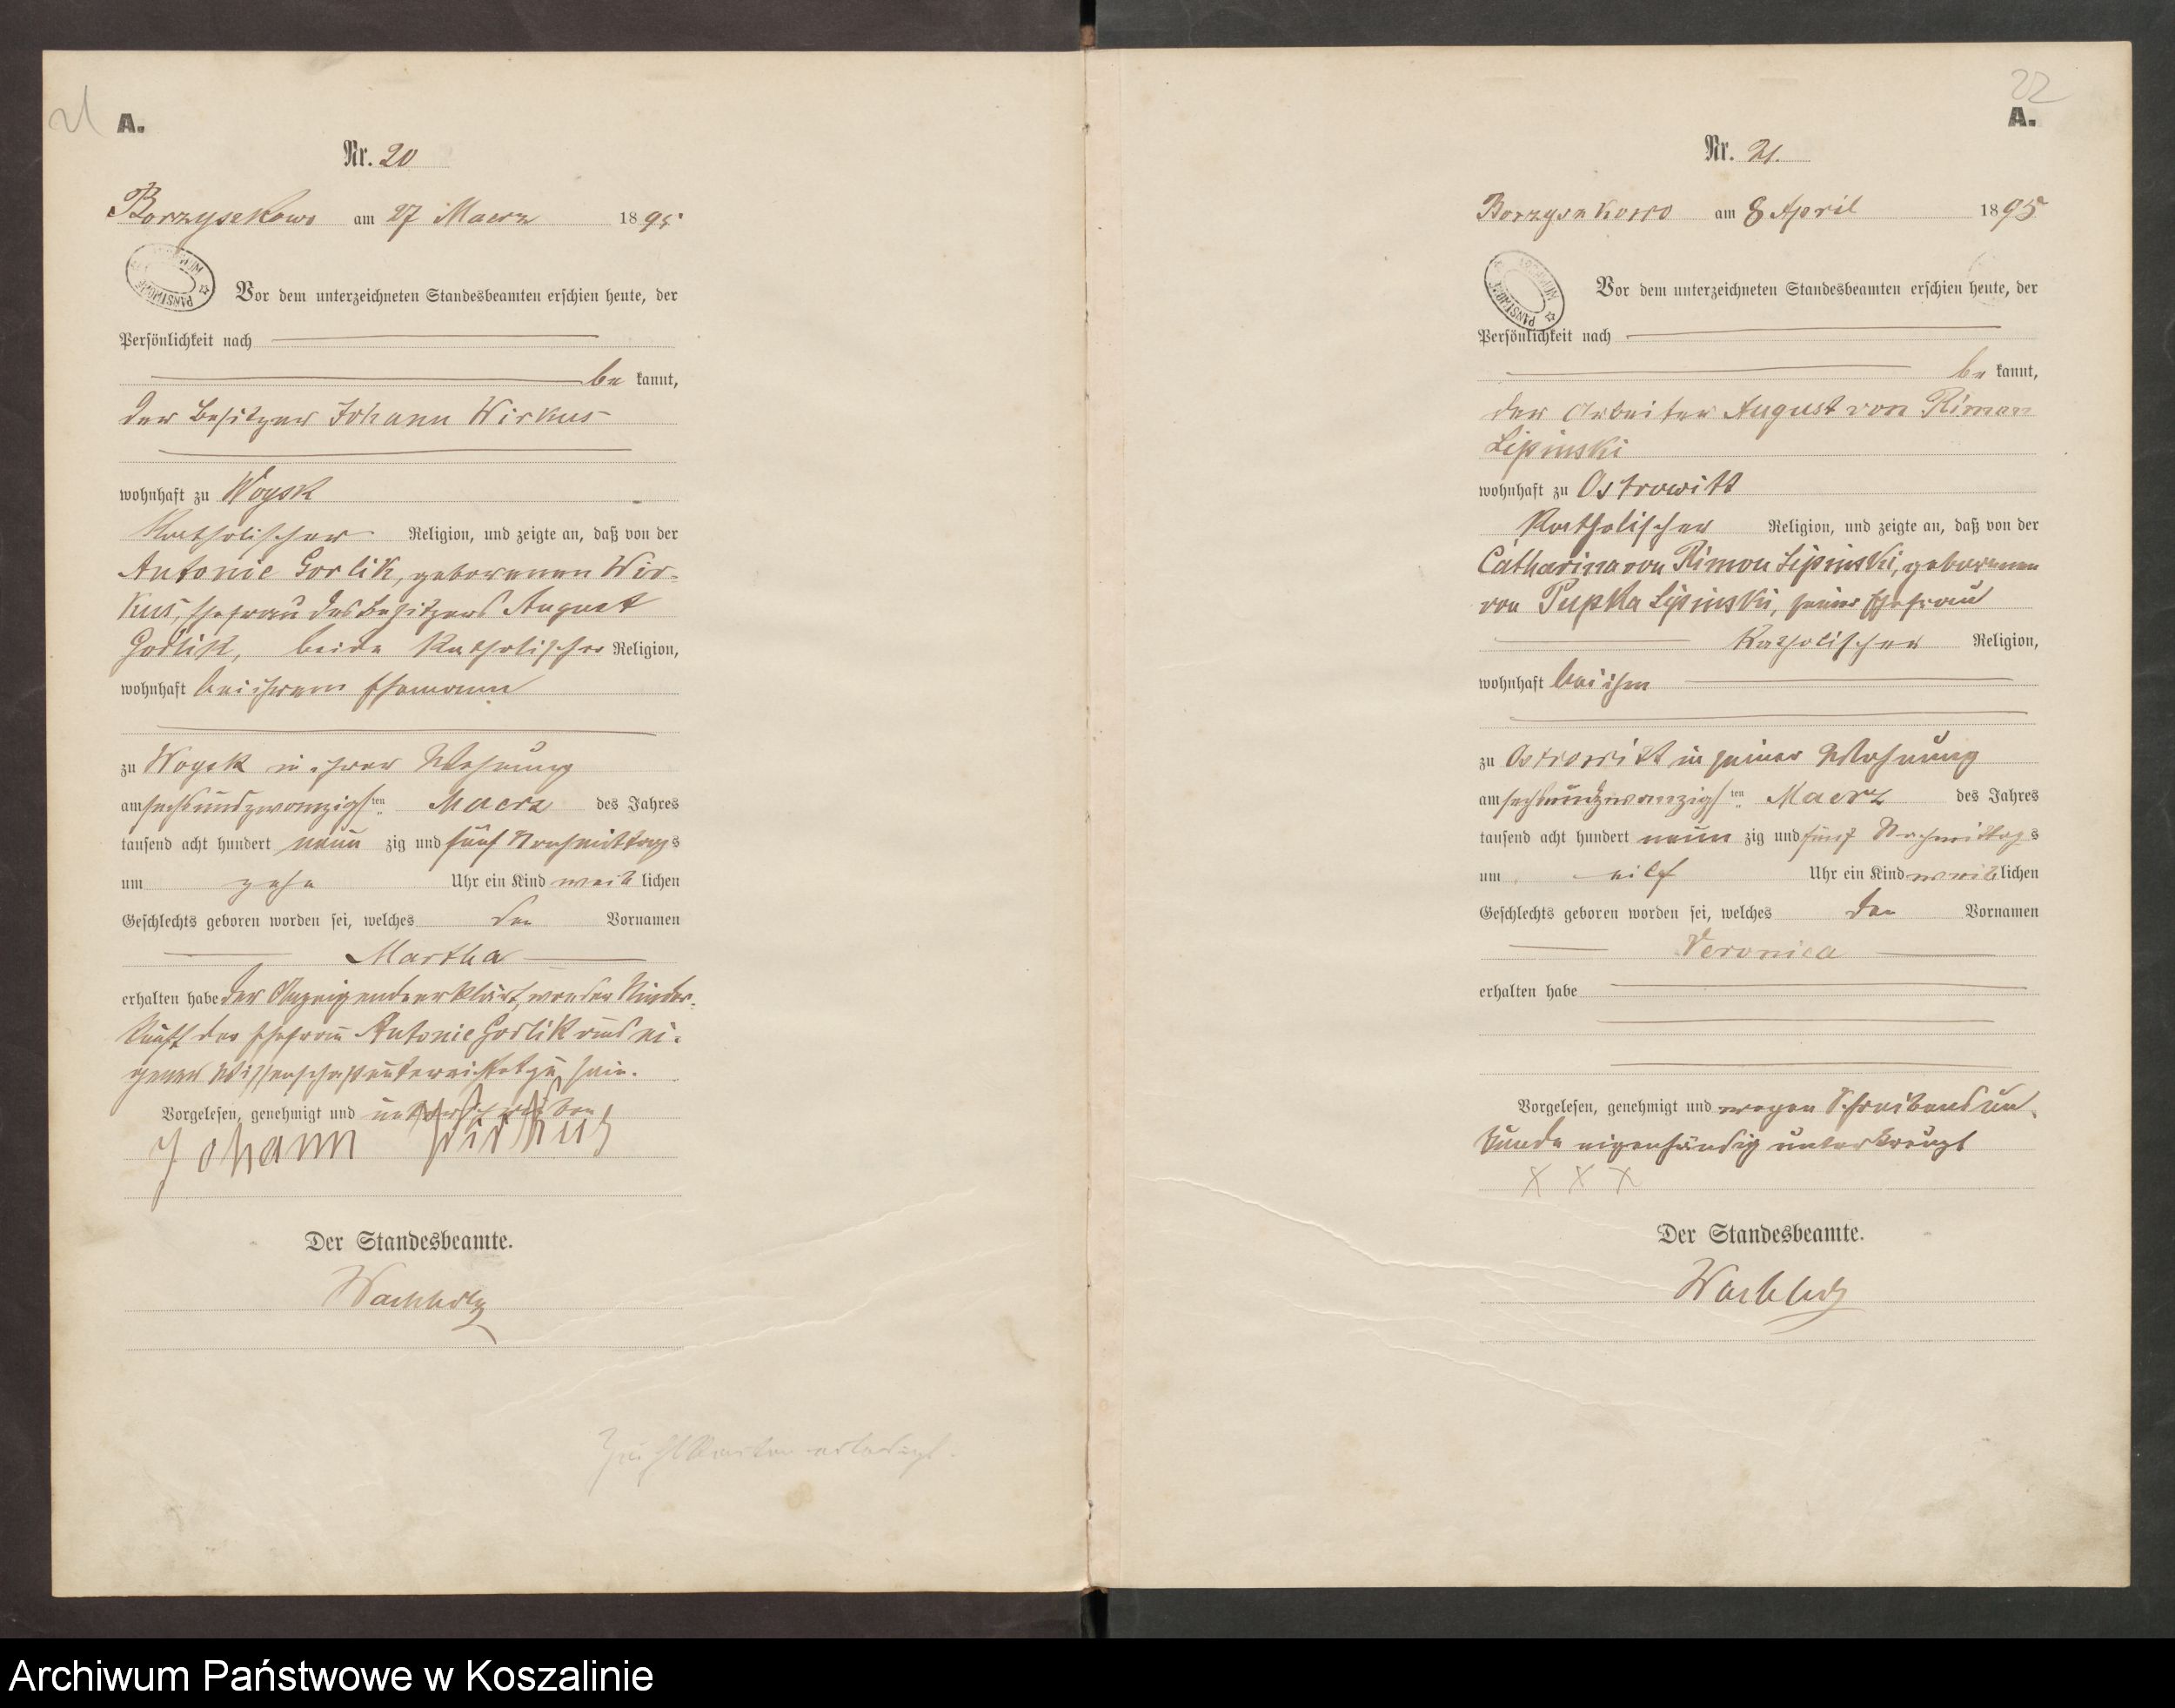 21
A.
Nr. 20
Borzyskowo am 27 Maerz 1895
Vor dem unterzeichneten Standesbeamten erschien heute, der
Persönlichkeit nach
be kannt,
der Besitzer Johann Wirkus
wohnhaft zu Woysk
Katholischer Religion, und zeigte an, daß von der
Antonie Gorlik, geborenen Wir-
kus, Ehefrau des Besitzers August
Gorlik, beide Katholischer Religion,
wohnhaft bei ihrem Ehemann
zu Woysk in ihrer Wohnung
am sechsundzwanzigsten Maerz des Jahres
tausend acht hundert neun zig und fünf Nachmittags
um zehn Uhr ein Kind weiblichen
Geschlechts geboren worden sei, welches den Vornamen
Martha
erhalten habe der Anzeigende erklärt, von der Nieder-
kunft der Ehefrau Antonie Gorlik aus ei-
gener Wissenschaft unterrichtet zu sein.
Vorgelesen, genehmigt und unterschrieben
Johann Wirkus
Der Standesbeamte.
Wachholz
22
A.
Nr. 21.
Borzyskowo am 8 April 1895
Vor dem unterzeichneten Standesbeamten erschien heute, der
Persönlichkeit nach
be kannt,
der Arbeiter August von Rimon
Lipinski
wohnhaft zu Ostrowitt
Katholischer Religion, und zeigte an, daß von der
Catharina von Rimon Lipinski, geborenen
von Pupka Lipinski, seiner Ehefrau
Katholischer Religion,
wohnhaft bei ihm
zu Ostrowitt in seiner Wohnung
am sechsundzwanzigsten Maerz des Jahres
tausend acht hundert neun zig und fünf Nachmittags
um eilf Uhr ein Kind weiblichen
Geschlechts geboren worden sei, welches den Vornamen
Veronica
erhalten habe
Vorgelesen, genehmigt und wegen Schreibensun-
kunde eigenhändig unterkreuzt
X X X
Der Standesbeamte.
Wachholz
Archiwum Państwowe w Koszalinie